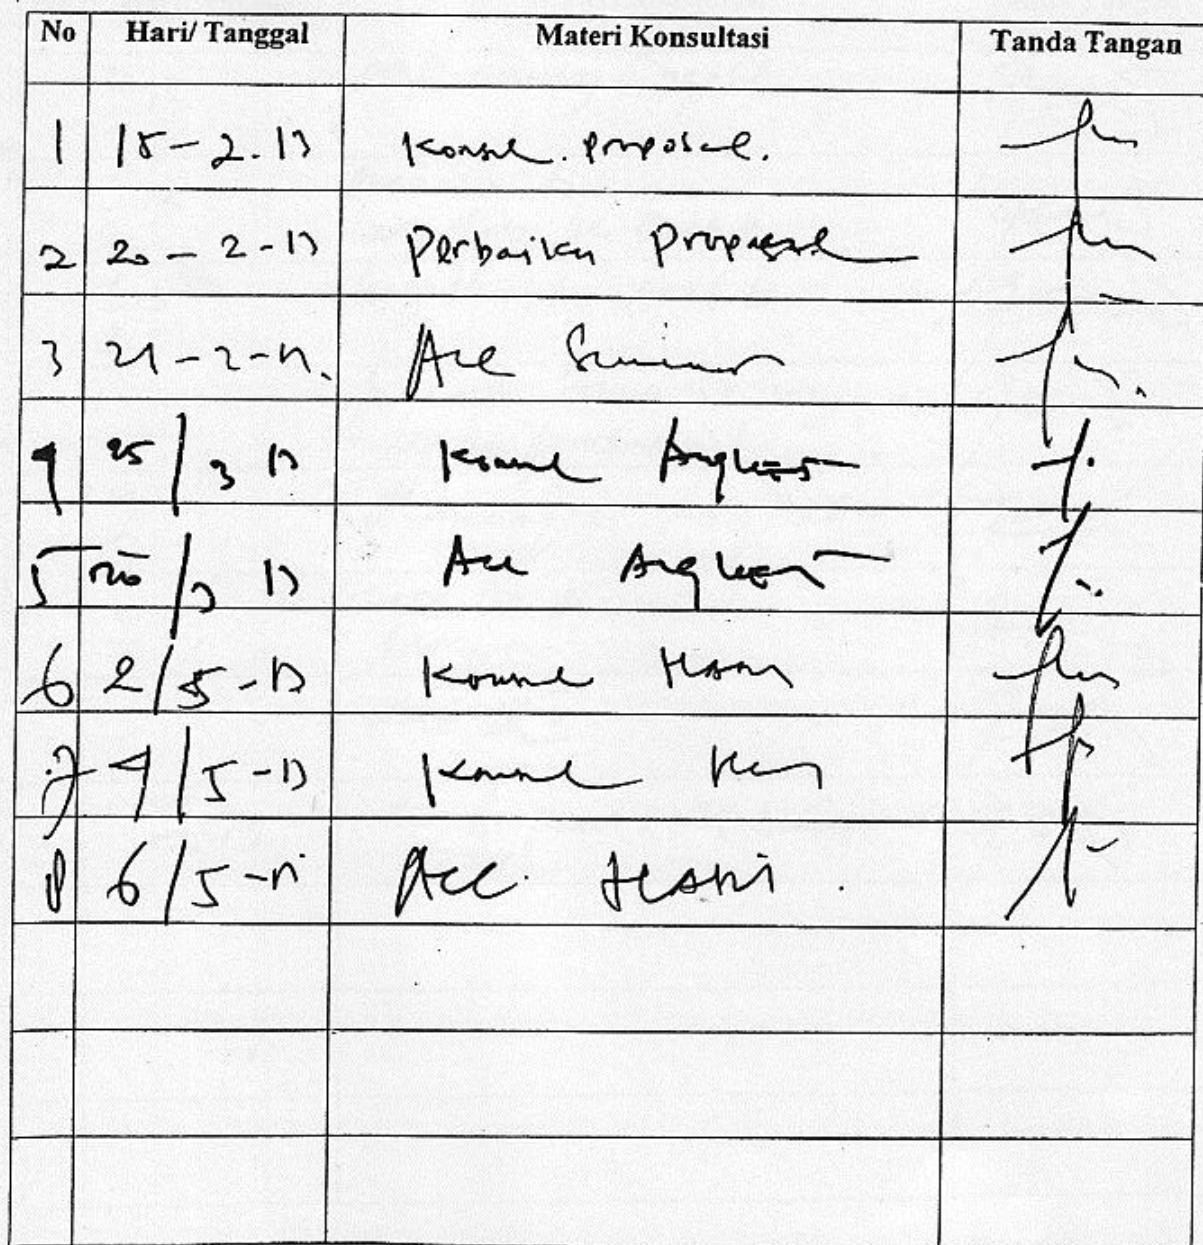 No Hari/ Tanggal Materi Konsultasi Tanda Tangan
1 18-2.13 Konsul. proposal.
2 20-2-13 Perbaikan proposal
3 21-2-13. Acc Seminar
4 25/3 13 Konsul Angket
5 /3 13 Acc Angket
6 2/5-13 Konsul Hasil
7 4/5-13 Konsul Hasil
8 6/5-13 Acc. Hasil.